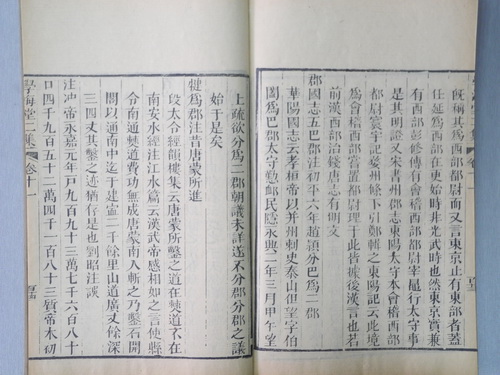 旣稱其爲西部都尉而又言東京止有東部者蓋
任延爲西部在更始時非光武時也然東京實兼
有西部彭修傳有會稽西部都尉宰黽行太守事
是其明證又宋書州郡志東陽太守本會稽西部
都尉寰宇記婺州條下引鄭輯之東陽記云此境
爲會稽西部常置都尉理于此皆據後漢言也若
前漢西部治錢唐志有明文
郡國志五巴郡注初平六年趙韙分巴爲二郡
華陽國志云孝桓帝以并州刺史泰山但望字伯
闓爲巴郡太守勤卹民隱永興二年三月甲午望
上疏欲分爲二郡朝議未許遂不分郡分郡之議
始于是矣
犍爲郡注昔唐蒙所進
段大令經韻樓集云唐蒙所鑿之道在僰道不在
南安水經注江水篇云漢武帝感相如之言使縣
令南通僰道費功無成唐蒙南入斬之乃鑿石開
閣以通南中迄于建寧二千餘里山道廣丈餘深
三四丈其鑿之迹猶存是也劉昭注誤
注冲帝永嘉元年戶九百九十三萬七千六百八十
口四千九百五十二萬四千一百八十三質帝本初
學海堂二集 卷十一